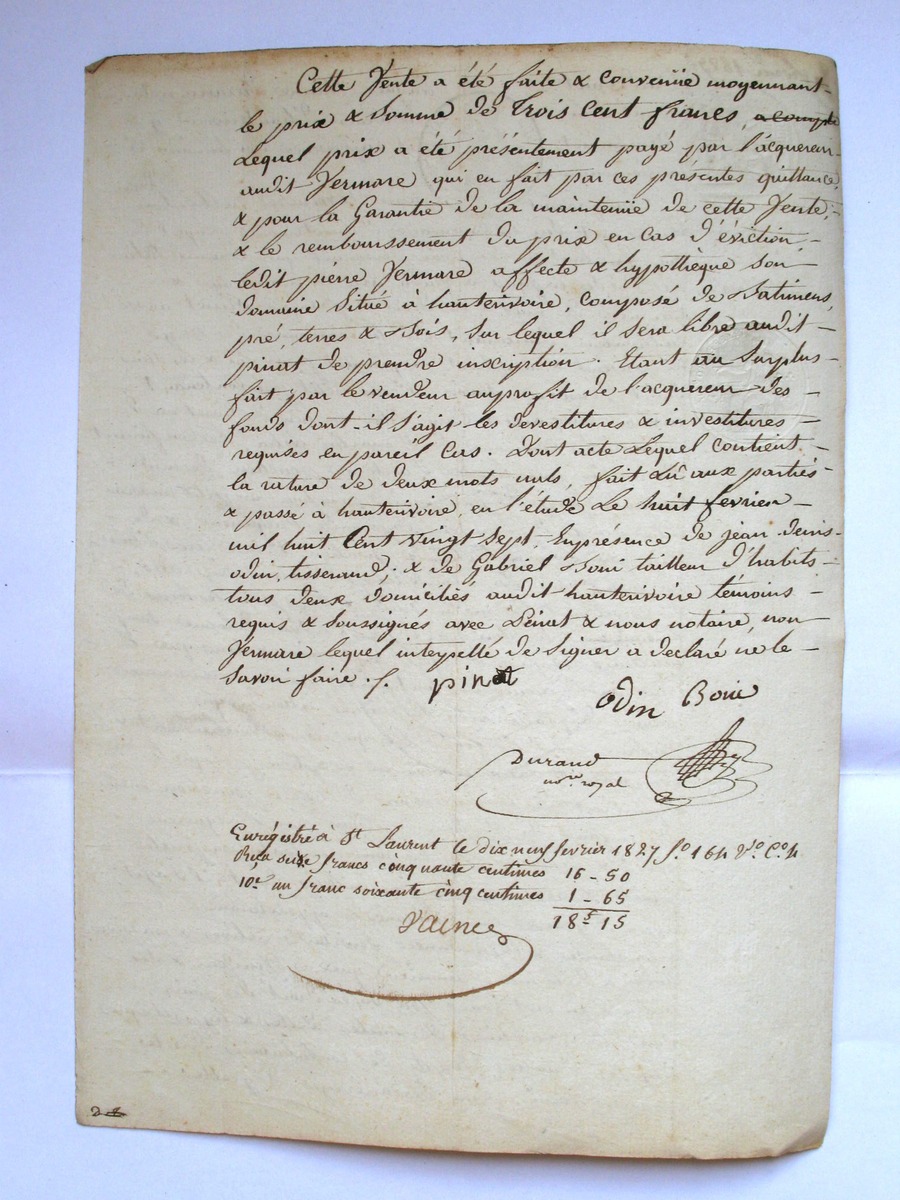 Cette Vente a été faite & convenüe moyennant
le prix & somme de trois cent francs, a compte
Lequel prix a été présentement payé par l'acquereur
audit Vermare qui en fait par ces présentes quittance,
& pour la Garantie de la maintenüe de cette Vente,
& le remboursement du prix en cas d'éviction
ledit pierre Vermare affecte & hypothèque son
domaine situé à hauterivoire, composé de Batimens,
pré, terres & Bois, sur lequel il sera libre audit
pinat de prendre inscription. Etant au surplus
fait par le vendeur au profit de l'acquereur des
fonds dont-il s'agit les devestitures & investitures
requises en pareil cas. Dont acte Lequel contient
la rature de deux mots nuls, fait Lû aux parties
& passé à hauterivoire, en l'étude Le huit fevrier
mil huit Cent vingt sept, En présence de jean denis
odin, tisserand, & de Gabriel Boui tailleur d'habits
tous deux domiciliés audit hauterivoire témoins
requis & soussignés avec Pinat & nous notaire, non
Vermare lequel interpellé de signer a declaré ne le
savoir faire. /.
pinat
odin Boüi
Durand
no.re royal
Enregistré à St Laurent le dix neuf fevrier 1827 fo. 164 Vo. Ce. 4
Reçu seize francs cinquante centimes 16 - 50
10e. un franc soixante cinq centimes 1 - 65
18f 15